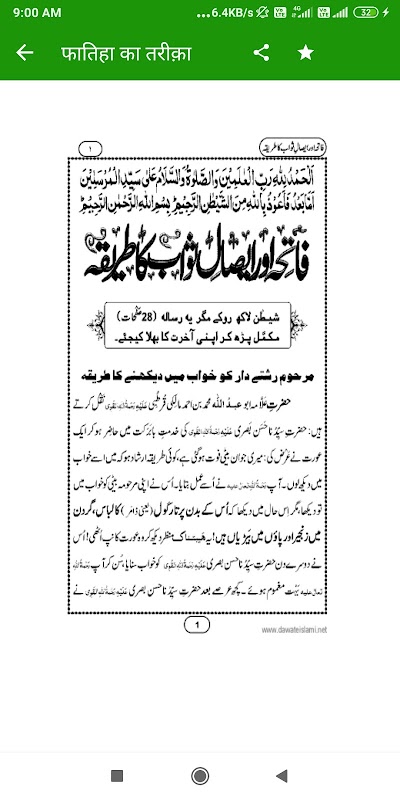 9:00 AM
...6.4KB/s 4G 32
फातिहा का तरीक़ा
فاتحہ اور ایصالِ ثواب کا طریقہ
۱
اَلْحَمْدُ لِلّٰهِ رَبِّ الْعٰلَمِیْنَ وَالصَّلٰوةُ وَالسَّلَامُ عَلٰی سَیِّدِ الْمُرْسَلِیْنَ
اَمَّا بَعْدُ فَاَعُوْذُ بِاللّٰهِ مِنَ الشَّیْطٰنِ الرَّجِیْمِ ؕ بِسْمِ اللّٰهِ الرَّحْمٰنِ الرَّحِیْمِ ؕ
فاتحہ اور ایصالِ ثواب کا طریقہ
شیطٰن لاکھ روکے مگر یہ رسالہ (28 صفحات)
مکمَّل پڑھ کر اپنی آخرت کا بھلا کیجئے۔
مرحوم رشتے دار کو خواب میں دیکھنے کا طریقہ
حضرتِ علّامہ ابو عبدُ اللّٰہ محمد بن احمد مالکی قُرطُبی عَلَیْهِ رَحْمَةُ اللّٰهِ الْقَوِی نقل کرتے
ہیں: حضرتِ سیِّدُنا حَسَن بَصری عَلَیْهِ رَحْمَةُ اللّٰهِ الْقَوِی کی خدمتِ بابَرَکت میں حاضِر ہو کر ایک
عورت نے عَرض کی: میری جوان بیٹی فوت ہو گئی ہے، کوئی طریقہ ارشاد ہو کہ میں اسے خواب
میں دیکھ لوں۔ آپ رَحْمَةُ اللّٰهِ تَعَالٰی عَلَیْه نے اُسے عمل بتا دیا۔ اُس نے اپنی مرحومہ بیٹی کو خواب میں
تو دیکھا، مگر اِس حال میں دیکھا کہ اُس کے بدن پر تارکول (یعنی ڈامَر) کا لباس، گردن
میں زنجیر اور پاؤں میں بَیڑیاں ہیں! یہ ہیبتناک منظر دیکھ کر وہ عورت کانپ اُٹھی! اُس
نے دوسرے دن حضرتِ سیِّدُنا حَسَن بصری عَلَیْهِ رَحْمَةُ اللّٰهِ الْقَوِی کو خواب سنایا، سُن کر آپ رَحْمَةُ اللّٰهِ
تَعَالٰی عَلَیْه بَہُت مغموم ہوئے۔ کچھ عرصے بعد حضرتِ سیِّدُنا حَسَن بصری عَلَیْهِ رَحْمَةُ اللّٰهِ الْقَوِی نے
1
www.dawateislami.net